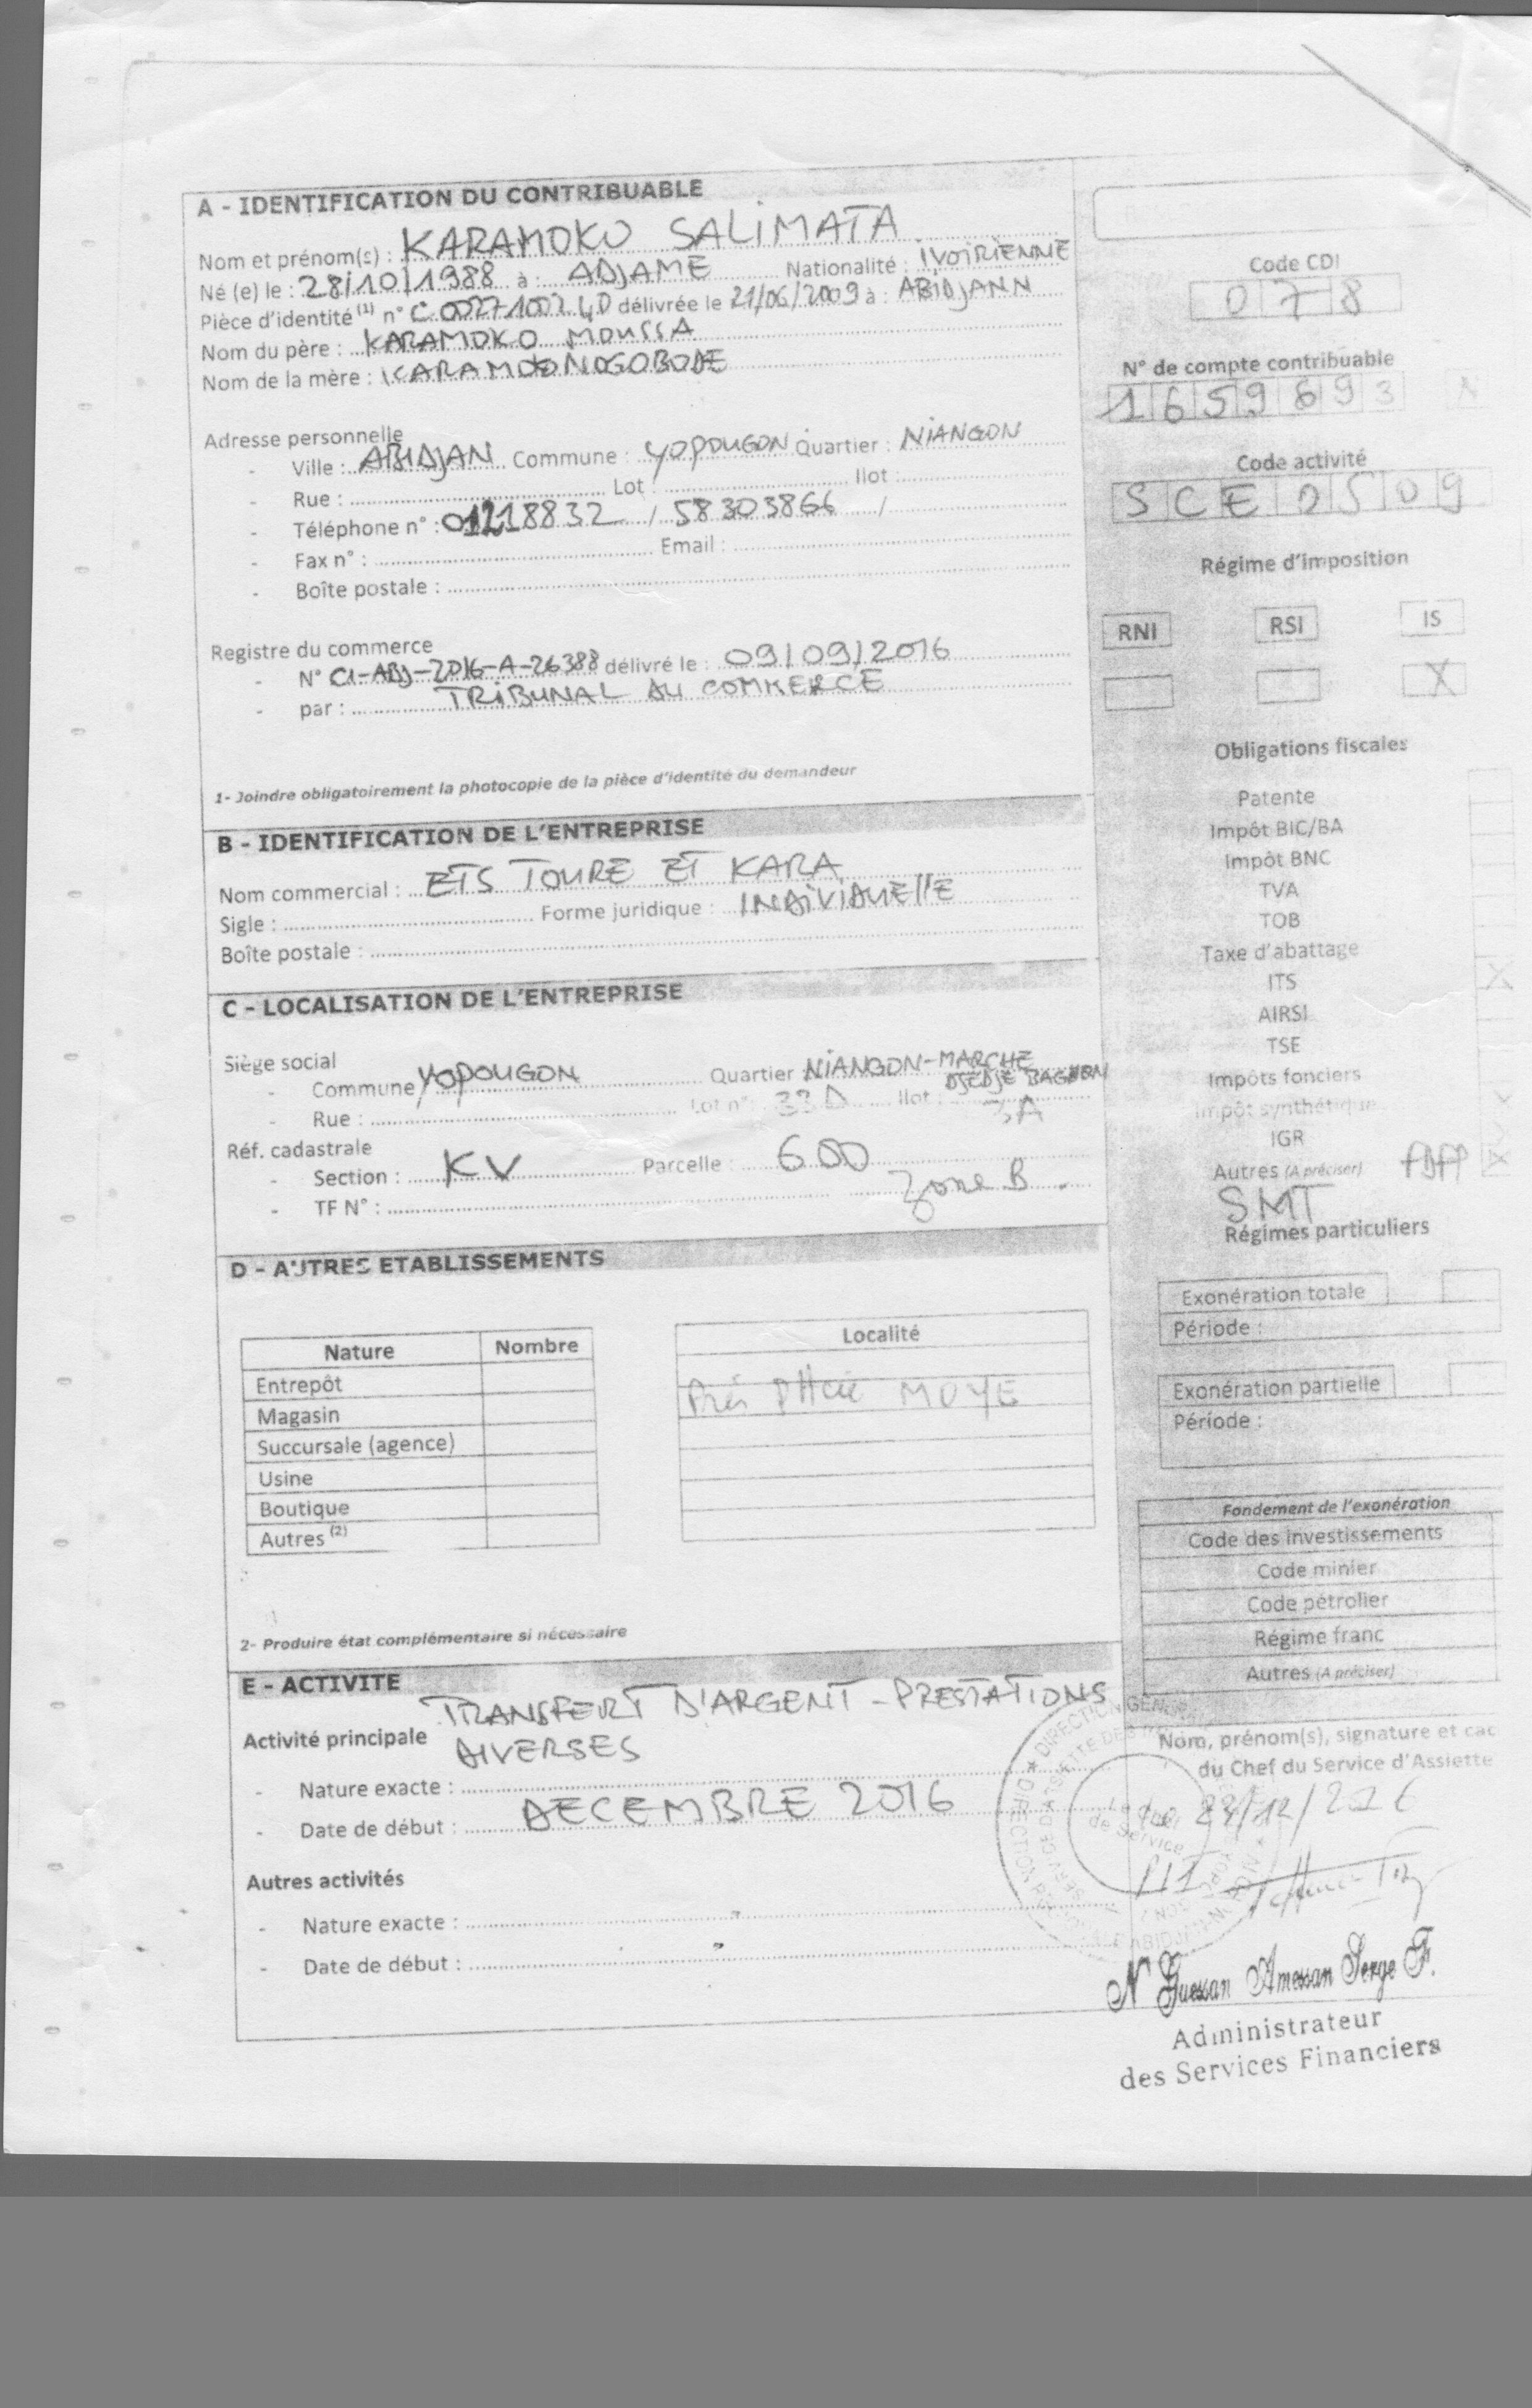 A - IDENTIFICATION DU CONTRIBUABLE
Nom et prénom(s) : KARAMOKO SALIMATA
Né (e) le : 28/10/1988 à : ADJAME Nationalité : IVOIRIENNE
Pièce d'identité (1) n° C 0027 1002 40 délivrée le 21/06/2009 à : ABIDJANN
Nom du père : KARAMOKO MOUSSA
Nom de la mère :
Adresse personnelle
- Ville : ABIDJAN Commune : YOPOUGON Quartier : NIANGON
- Rue : Lot : Ilot :
- Téléphone n° : 01218832 / 58303866 /
- Fax n° : Email :
- Boîte postale :
Registre du commerce
- N° CI-ABJ-2016-A-26388 délivré le : 09/09/2016
- par : TRIBUNAL DU COMMERCE
1- Joindre obligatoirement la photocopie de la pièce d'identité du demandeur
B - IDENTIFICATION DE L'ENTREPRISE
Nom commercial : ETS TOURE ET KARA
Sigle : Forme juridique : INDIVIDUELLE
Boîte postale :
C - LOCALISATION DE L'ENTREPRISE
Siège social
- Commune YOPOUGON Quartier NIANGON-MARCHE
DJEDJE BAGNON
- Rue : Lot n° : 33D Ilot : 3A
Réf. cadastrale
- Section : KV Parcelle : 600
- TF N° : Zone B.
D - AUTRES ETABLISSEMENTS
Nature Nombre
Entrepôt
Magasin
Succursale (agence)
Usine
Boutique
Autres (2)
Localité
Près Phcie MOYE
2- Produire état complémentaire si nécessaire
E - ACTIVITE
Activité principale TRANSFERT D'ARGENT - PRESTATIONS
DIVERSES
- Nature exacte :
- Date de début : DECEMBRE 2016
Autres activités
- Nature exacte :
- Date de début :
Code CDI
078
N° de compte contribuable
1659693 N
Code activité
SCE 0509
Régime d'imposition
RNI RSI IS
X
Obligations fiscales
Patente
Impôt BIC/BA
Impôt BNC
TVA
TOB
Taxe d'abattage
ITS X
AIRSI
TSE
Impôts fonciers
Impôt synthétique
IGR
Autres (A préciser) FDFP X
SMT
Régimes particuliers
Exonération totale
Période :
Exonération partielle
Période :
Fondement de l'exonération
Code des investissements
Code minier
Code pétrolier
Régime franc
Autres (A préciser)
Nom, prénom(s), signature et cac
du Chef du Service d'Assiette
Le Chef
de Service
N'Guessan Amessan Serge F.
Administrateur
des Services Financiers